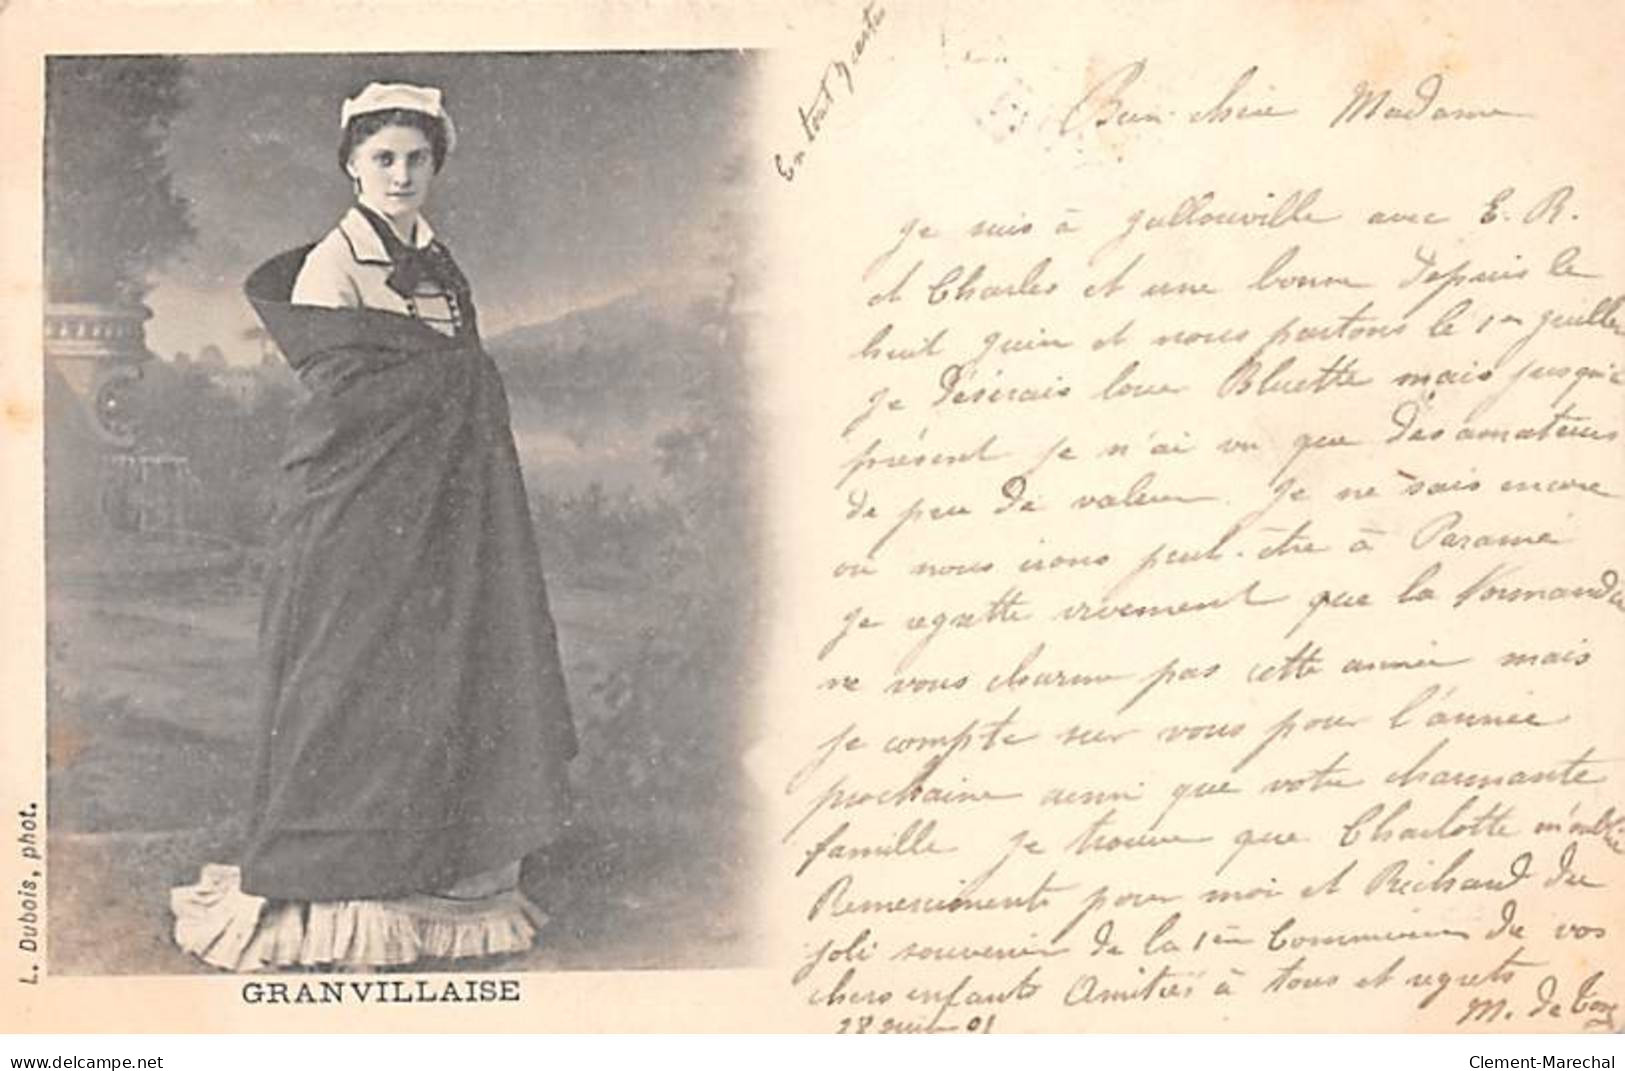 En tout
Bien chère Madame
Je suis à Jullouville avec E. R.
et Charles et une bonne depuis le
huit Juin et nous partons le 1er Juillet
Je désirais louer Bluette mais jusqu'à
présent je n'ai vu que des amateurs
de peu de valeur. Je ne sais encore
ou nous irons peut-être à Paramé
Je regrette vivement que la Normandie
ne vous charme pas cette année mais
je compte sur vous pour l'année
prochaine ainsi que votre charmante
famille Je trouve que Charlotte m'oublie
Remerciments pour moi et Richard du
joli souvenir de la 1ère Communion de vos
chers enfants Amitiés à tous et regrets
28 Juin 01 M. de
L. Dubois, phot.
GRANVILLAISE
www.delcampe.net
Clement-Marechal